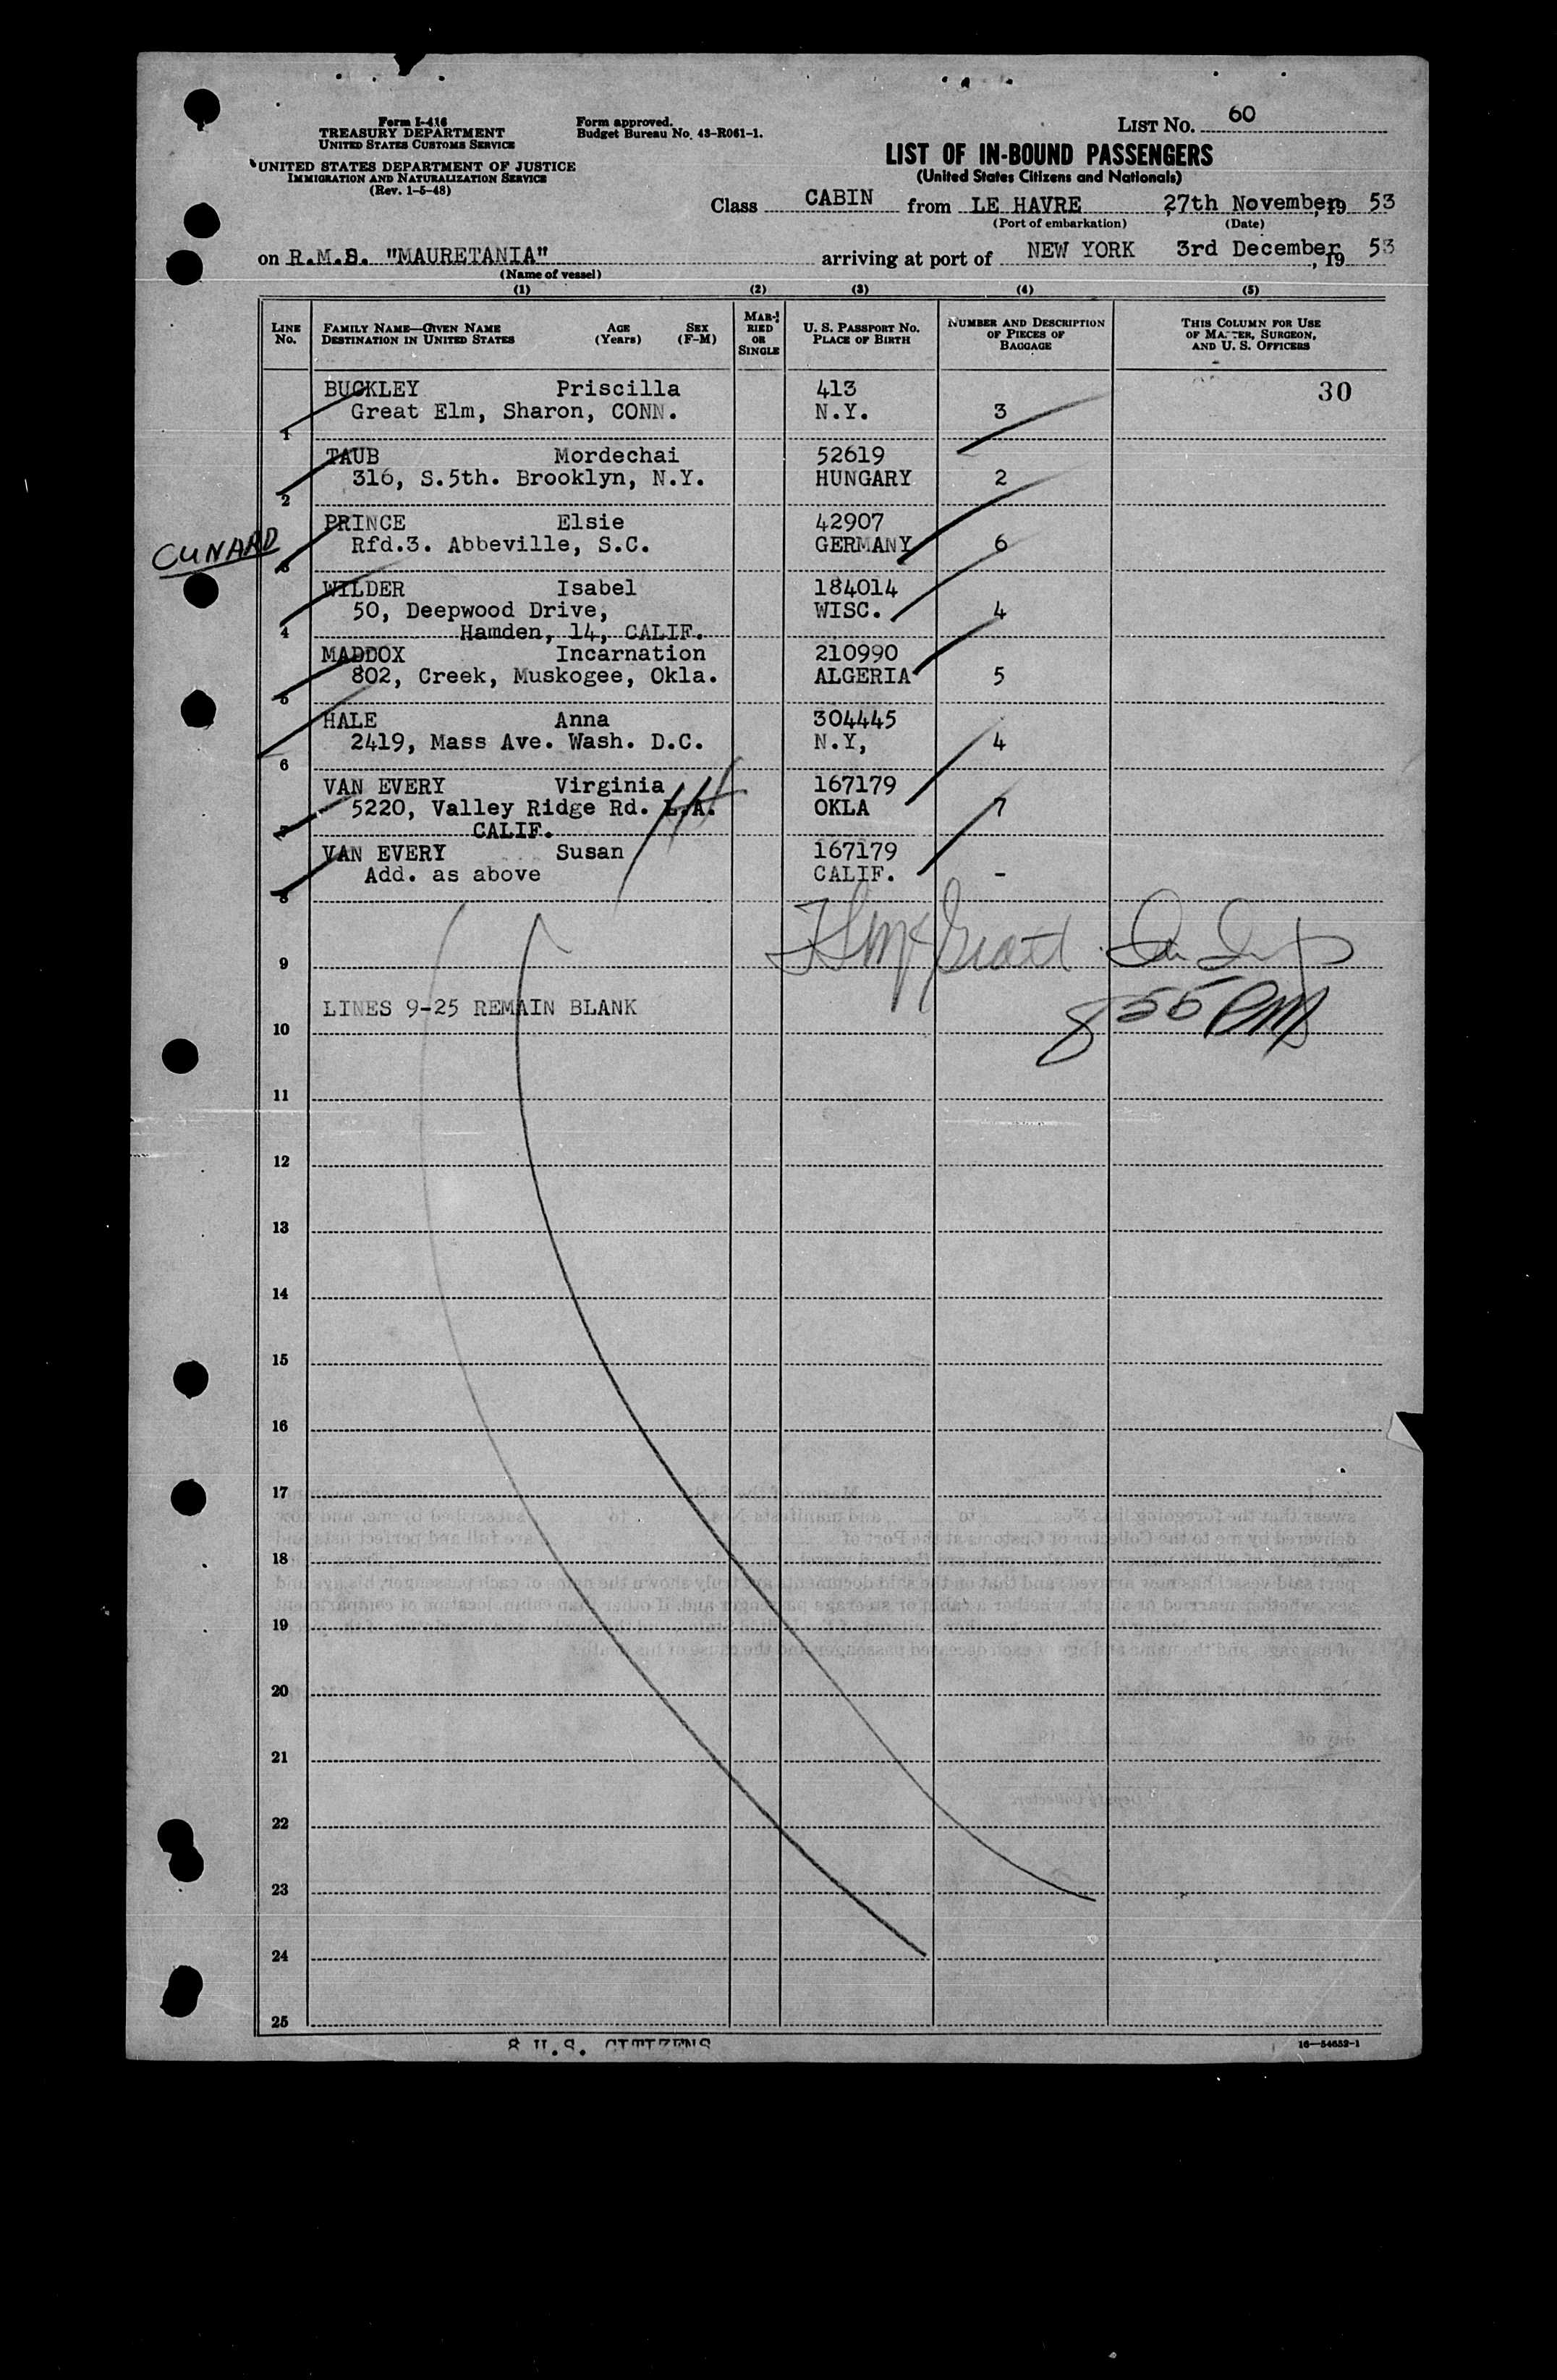 Form I-416
TREASURY DEPARTMENT
UNITED STATES CUSTOMS SERVICE
UNITED STATES DEPARTMENT OF JUSTICE
IMMIGRATION AND NATURALIZATION SERVICE
(Rev. 1-5-48)
Form approved.
Budget Bureau No. 43-R061-1.
LIST No. 60
LIST OF IN-BOUND PASSENGERS
(United States Citizens and Nationals)
Class CABIN from LE HAVRE 27th November, 19 53
(Port of embarkation) (Date)
on R.M.S. "MAURETANIA" arriving at port of NEW YORK 3rd December, 19 53
(Name of vessel)
(1) (2) (3) (4) (5)
LINE No. FAMILY NAME—GIVEN NAME DESTINATION IN UNITED STATES AGE (Years) SEX (F-M) MARRIED OR SINGLE U. S. PASSPORT No. PLACE OF BIRTH NUMBER AND DESCRIPTION OF PIECES OF BAGGAGE THIS COLUMN FOR USE OF MASTER, SURGEON, AND U. S. OFFICERS
BUCKLEY Priscilla 413 30
1 Great Elm, Sharon, CONN. N.Y. 3
TAUB Mordechai 52619
2 316, S.5th. Brooklyn, N.Y. HUNGARY 2
CUNARD
PRINCE Elsie 42907
3 Rfd.3. Abbeville, S.C. GERMANY 6
WILDER Isabel 184014
50, Deepwood Drive, WISC. 4
4 Hamden, 14, CALIF.
MADDOX Incarnation 210990
5 802, Creek, Muskogee, Okla. ALGERIA 5
HALE Anna 304445
6 2419, Mass Ave. Wash. D.C. N.Y, 4
VAN EVERY Virginia 167179
5220, Valley Ridge Rd. L.A. OKLA 7
7 CALIF.
VAN EVERY Susan 167179
8 Add. as above CALIF. -
9
LINES 9-25 REMAIN BLANK
8 55 PM
10
11
12
13
14
15
16
17
18
19
20
21
22
23
24
25
8 U.S. CITIZENS
16—54652-1